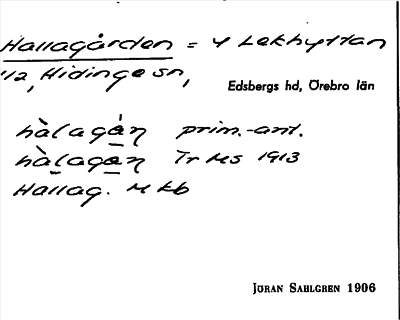 Hallagården = Y Lekhyttan
1/2, Hidinge sn,
Edsbergs hd, Örebro län
hà̀lagȧ̀n prim.-ant.
hàlagàn Tr Ms 1913
Hallag. M kb
JÖRAN SAHLGREN 1906